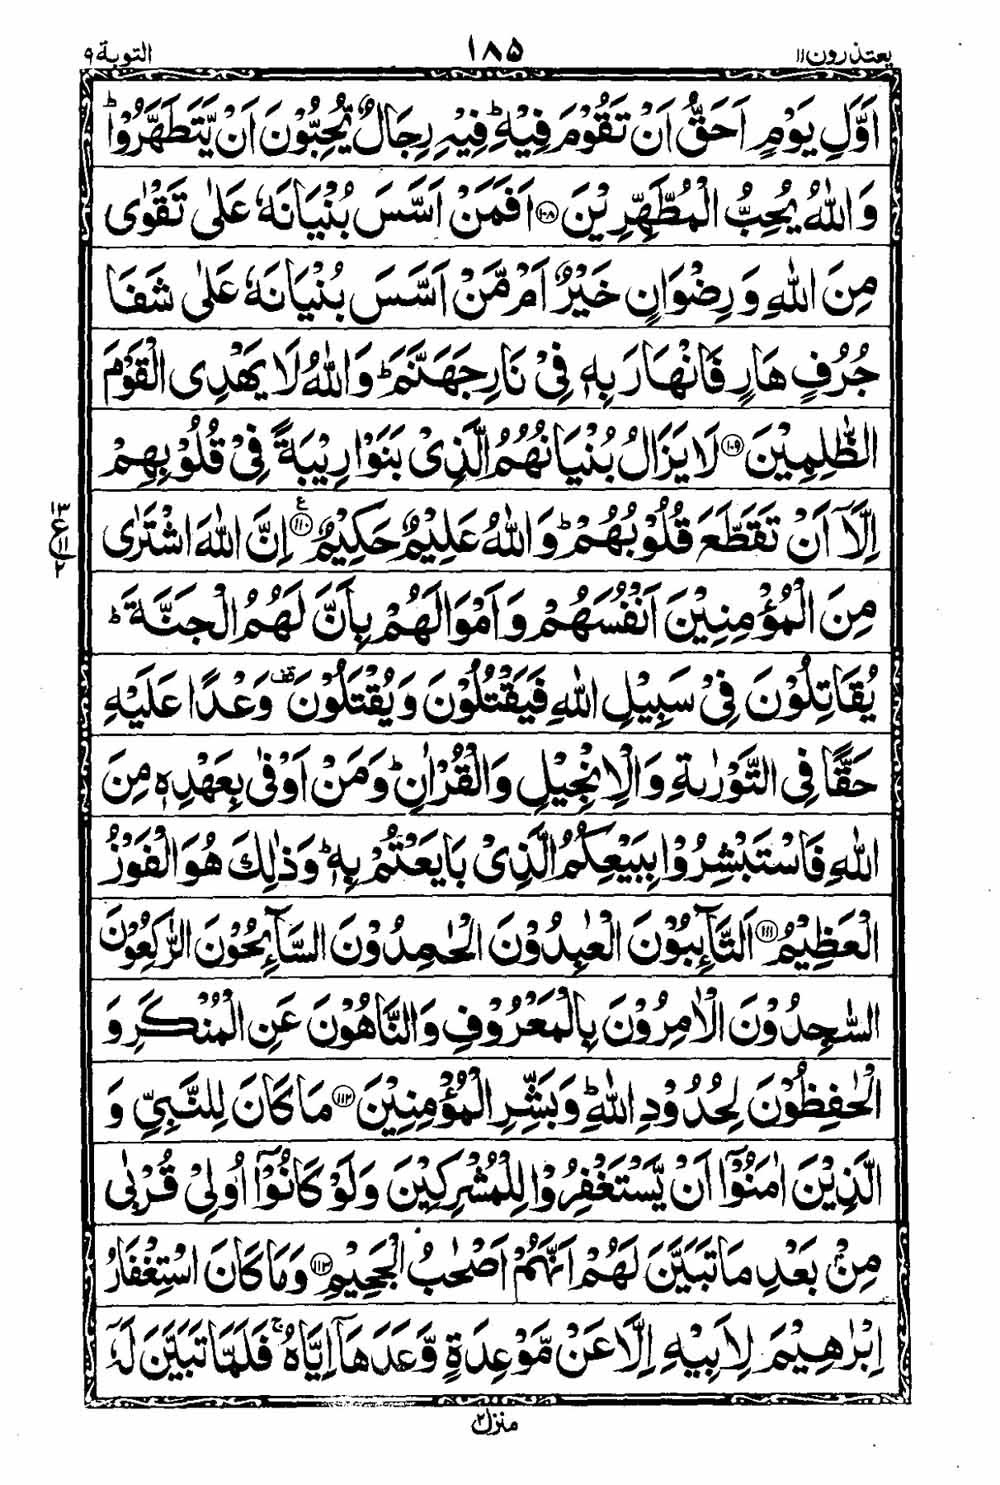 يعتذرون ١١ ١٨٥ التوبة ٩
اَوَّلِ يَوْمٍ اَحَقُّ اَنْ تَقُوْمَ فِيْهِ ؕ فِيْهِ رِجَالٌ يُّحِبُّوْنَ اَنْ يَّتَطَهَّرُوْا ؕ
وَاللّٰهُ يُحِبُّ الْمُطَّهِّرِيْنَ ﴿۱۰۸﴾ اَفَمَنْ اَسَّسَ بُنْيَانَهٗ عَلٰى تَقْوٰى
مِنَ اللّٰهِ وَرِضْوَانٍ خَيْرٌ اَمْ مَّنْ اَسَّسَ بُنْيَانَهٗ عَلٰى شَفَا
جُرُفٍ هَارٍ فَانْهَارَ بِهٖ فِىْ نَارِ جَهَنَّمَ ؕ وَاللّٰهُ لَا يَهْدِى الْقَوْمَ
الظّٰلِمِيْنَ ﴿۱۰۹﴾ لَا يَزَالُ بُنْيَانُهُمُ الَّذِىْ بَنَوْا رِيْبَةً فِىْ قُلُوْبِهِمْ
اِلَّاۤ اَنْ تَقَطَّعَ قُلُوْبُهُمْ ؕ وَاللّٰهُ عَلِيْمٌ حَكِيْمٌ ﴿۱۱۰﴾ ع اِنَّ اللّٰهَ اشْتَرٰى
١٣ ع ١١ ٢
مِنَ الْمُؤْمِنِيْنَ اَنْفُسَهُمْ وَاَمْوَالَهُمْ بِاَنَّ لَهُمُ الْجَنَّةَ ؕ
يُقَاتِلُوْنَ فِىْ سَبِيْلِ اللّٰهِ فَيَقْتُلُوْنَ وَيُقْتَلُوْنَ قف وَعْدًا عَلَيْهِ
حَقًّا فِى التَّوْرٰىةِ وَالْاِنْجِيْلِ وَالْقُرْاٰنِ ؕ وَمَنْ اَوْفٰى بِعَهْدِهٖ مِنَ
اللّٰهِ فَاسْتَبْشِرُوْا بِبَيْعِكُمُ الَّذِىْ بَايَعْتُمْ بِهٖ ؕ وَذٰلِكَ هُوَ الْفَوْزُ
الْعَظِيْمُ ﴿۱۱۱﴾ اَلتَّآئِبُوْنَ الْعٰبِدُوْنَ الْحٰمِدُوْنَ السَّآئِحُوْنَ الرّٰكِعُوْنَ
السّٰجِدُوْنَ الْاٰمِرُوْنَ بِالْمَعْرُوْفِ وَالنَّاهُوْنَ عَنِ الْمُنْكَرِ وَ
الْحٰفِظُوْنَ لِحُدُوْدِ اللّٰهِ ؕ وَبَشِّرِ الْمُؤْمِنِيْنَ ﴿۱۱۲﴾ مَا كَانَ لِلنَّبِىِّ وَ
الَّذِيْنَ اٰمَنُوْۤا اَنْ يَّسْتَغْفِرُوْا لِلْمُشْرِكِيْنَ وَلَوْ كَانُوْۤا اُولِىْ قُرْبٰى
مِنْۢ بَعْدِ مَا تَبَيَّنَ لَهُمْ اَنَّهُمْ اَصْحٰبُ الْجَحِيْمِ ﴿۱۱۳﴾ وَمَا كَانَ اسْتِغْفَارُ
اِبْرٰهِيْمَ لِاَبِيْهِ اِلَّا عَنْ مَّوْعِدَةٍ وَّعَدَهَاۤ اِيَّاهُ ۚ فَلَمَّا تَبَيَّنَ لَهٗۤ
منزل ٢